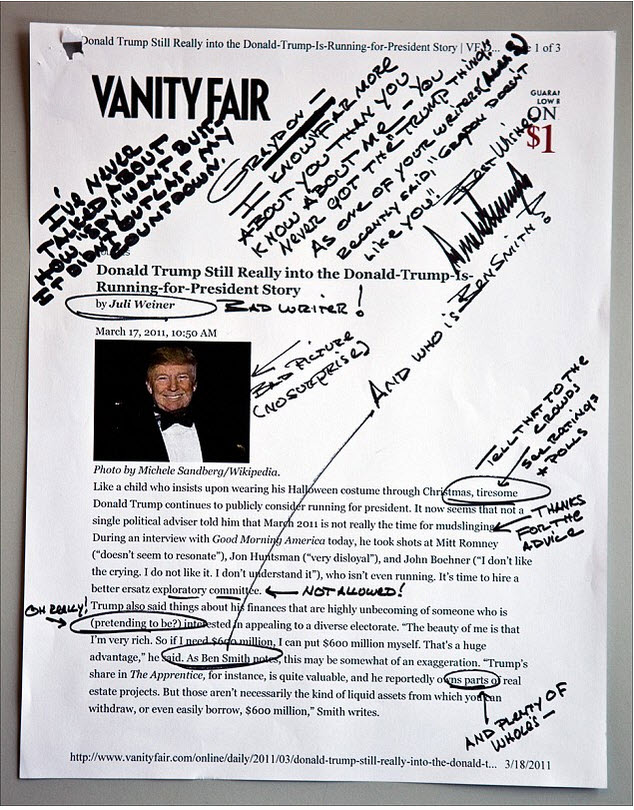 Donald Trump Still Really into the Donald-Trump-Is-Running-for-President Story | VF D... 1 of 3
VANITY FAIR
GUARA
LOW R
ON
$1
I'VE NEVER
TALKED ABOUT
HOW "SPY" WENT BUST
IT DIDN'T OUTLAST MY
COUNTDOWN!
GRAYDON —
I KNOW FAR MORE
ABOUT YOU THAN YOU
KNOW ABOUT ME — YOU
NEVER GOT THE "TRUMP THING"!
AS ONE OF YOUR WRITERS
RECENTLY SAID, "GRAYDON DOESN'T
LIKE YOU".
BEST WISHES
Donald Trump Still Really into the Donald-Trump-Is-
Running-for-President Story
by Juli Weiner
BAD WRITER!
March 17, 2011, 10:50 AM
BAD PICTURE
(NO SURPRISE)
AND WHO IS BEN SMITH?
TELL THAT TO THE
CROWDS
SEE RATINGS
+ POLLS
Photo by Michele Sandberg/Wikipedia.
Like a child who insists upon wearing his Halloween costume through Christmas, tiresome
Donald Trump continues to publicly consider running for president. It now seems that not a
single political adviser told him that March 2011 is not really the time for mudslinging.
THANKS
FOR THE
ADVICE
During an interview with Good Morning America today, he took shots at Mitt Romney
("doesn't seem to resonate"), Jon Huntsman ("very disloyal"), and John Boehner ("I don't like
the crying. I do not like it. I don't understand it"), who isn't even running. It's time to hire a
better ersatz exploratory committee.
NOT ALLOWED!
OH REALLY!
Trump also said things about his finances that are highly unbecoming of someone who is
(pretending to be?) interested in appealing to a diverse electorate. "The beauty of me is that
I'm very rich. So if I need $600 million, I can put $600 million myself. That's a huge
advantage," he said. As Ben Smith notes, this may be somewhat of an exaggeration. "Trump's
share in The Apprentice, for instance, is quite valuable, and he reportedly owns parts of real
estate projects. But those aren't necessarily the kind of liquid assets from which you can
withdraw, or even easily borrow, $600 million," Smith writes.
AND PLENTY OF
WHOLES —
http://www.vanityfair.com/online/daily/2011/03/donald-trump-still-really-into-the-donald-t... 3/18/2011